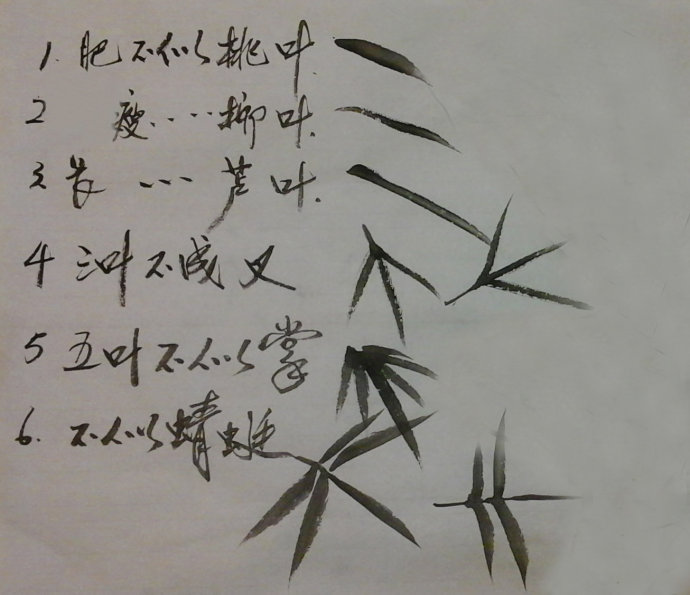 1. 肥不似桃叶.
2 瘦....柳叶.
3 长...芦叶.
4 三叶不成叉
5 五叶不似掌
6. 不似蜻蜓